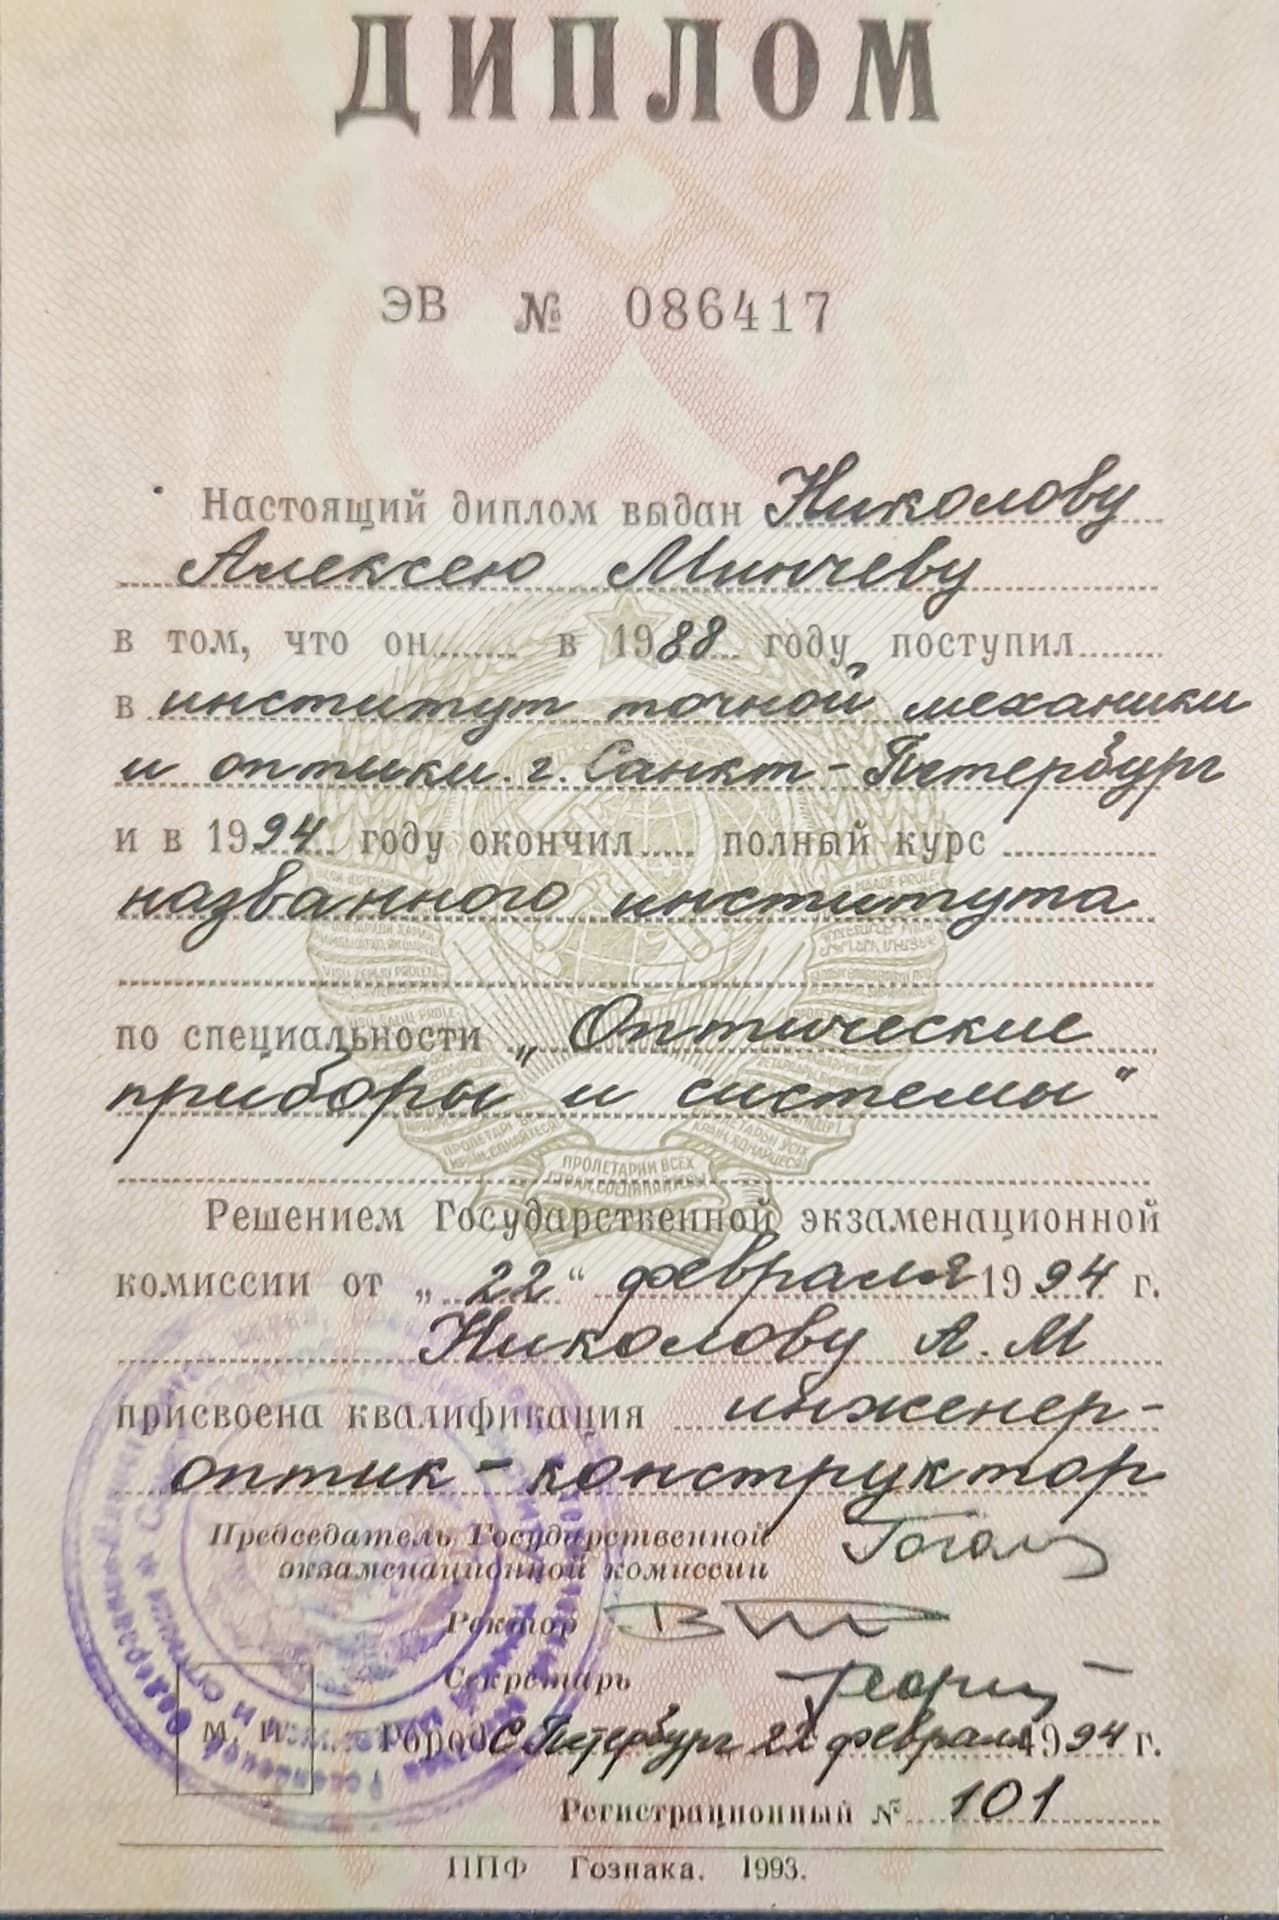 ДИПЛОМ
ЭВ № 086417
Настоящий диплом выдан Николову
Алексею Минчеву
в том, что он в 1988 году поступил
в институт точной механики
и оптики г. Санкт-Петербург
и в 1994 году окончил полный курс
названного института
по специальности „Оптические
приборы и системы"
ПРОЛЕТАРИИ ВСЕХ
СТРАН, СОЕДИНЯЙТЕСЬ
Решением Государственной экзаменационной
комиссии от „22“ февраля 1994 г.
Николову А.М
присвоена квалификация инженер-
оптик-конструктор
Председатель Государственной
экзаменационной комиссии
Ректор
Секретарь
М. П. Город С Петербург 22 февраля 1994 г.
Регистрационный № 101
ППФ Гознака. 1993.